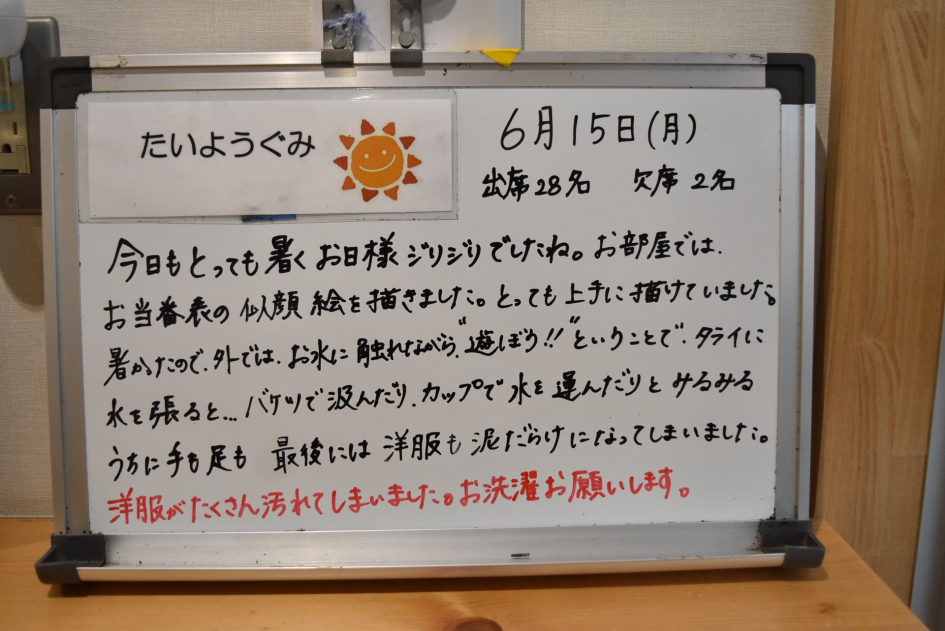 たいようぐみ
6月15日(月)
出席28名 欠席2名
今日もとっても暑くお日様ジリジリでしたね。お部屋では、
お当番表の似顔絵を描きました。とっても上手に描けていました。
暑かったので、外では、お水に触れながら、"遊ぼう!!"ということで、タライに
水を張ると…バケツで汲んだり、カップで水を運んだりとみるみる
うちに手も足も 最後には洋服も泥だらけになってしまいました。
洋服がたくさん汚れてしまいました。お洗濯お願いします。